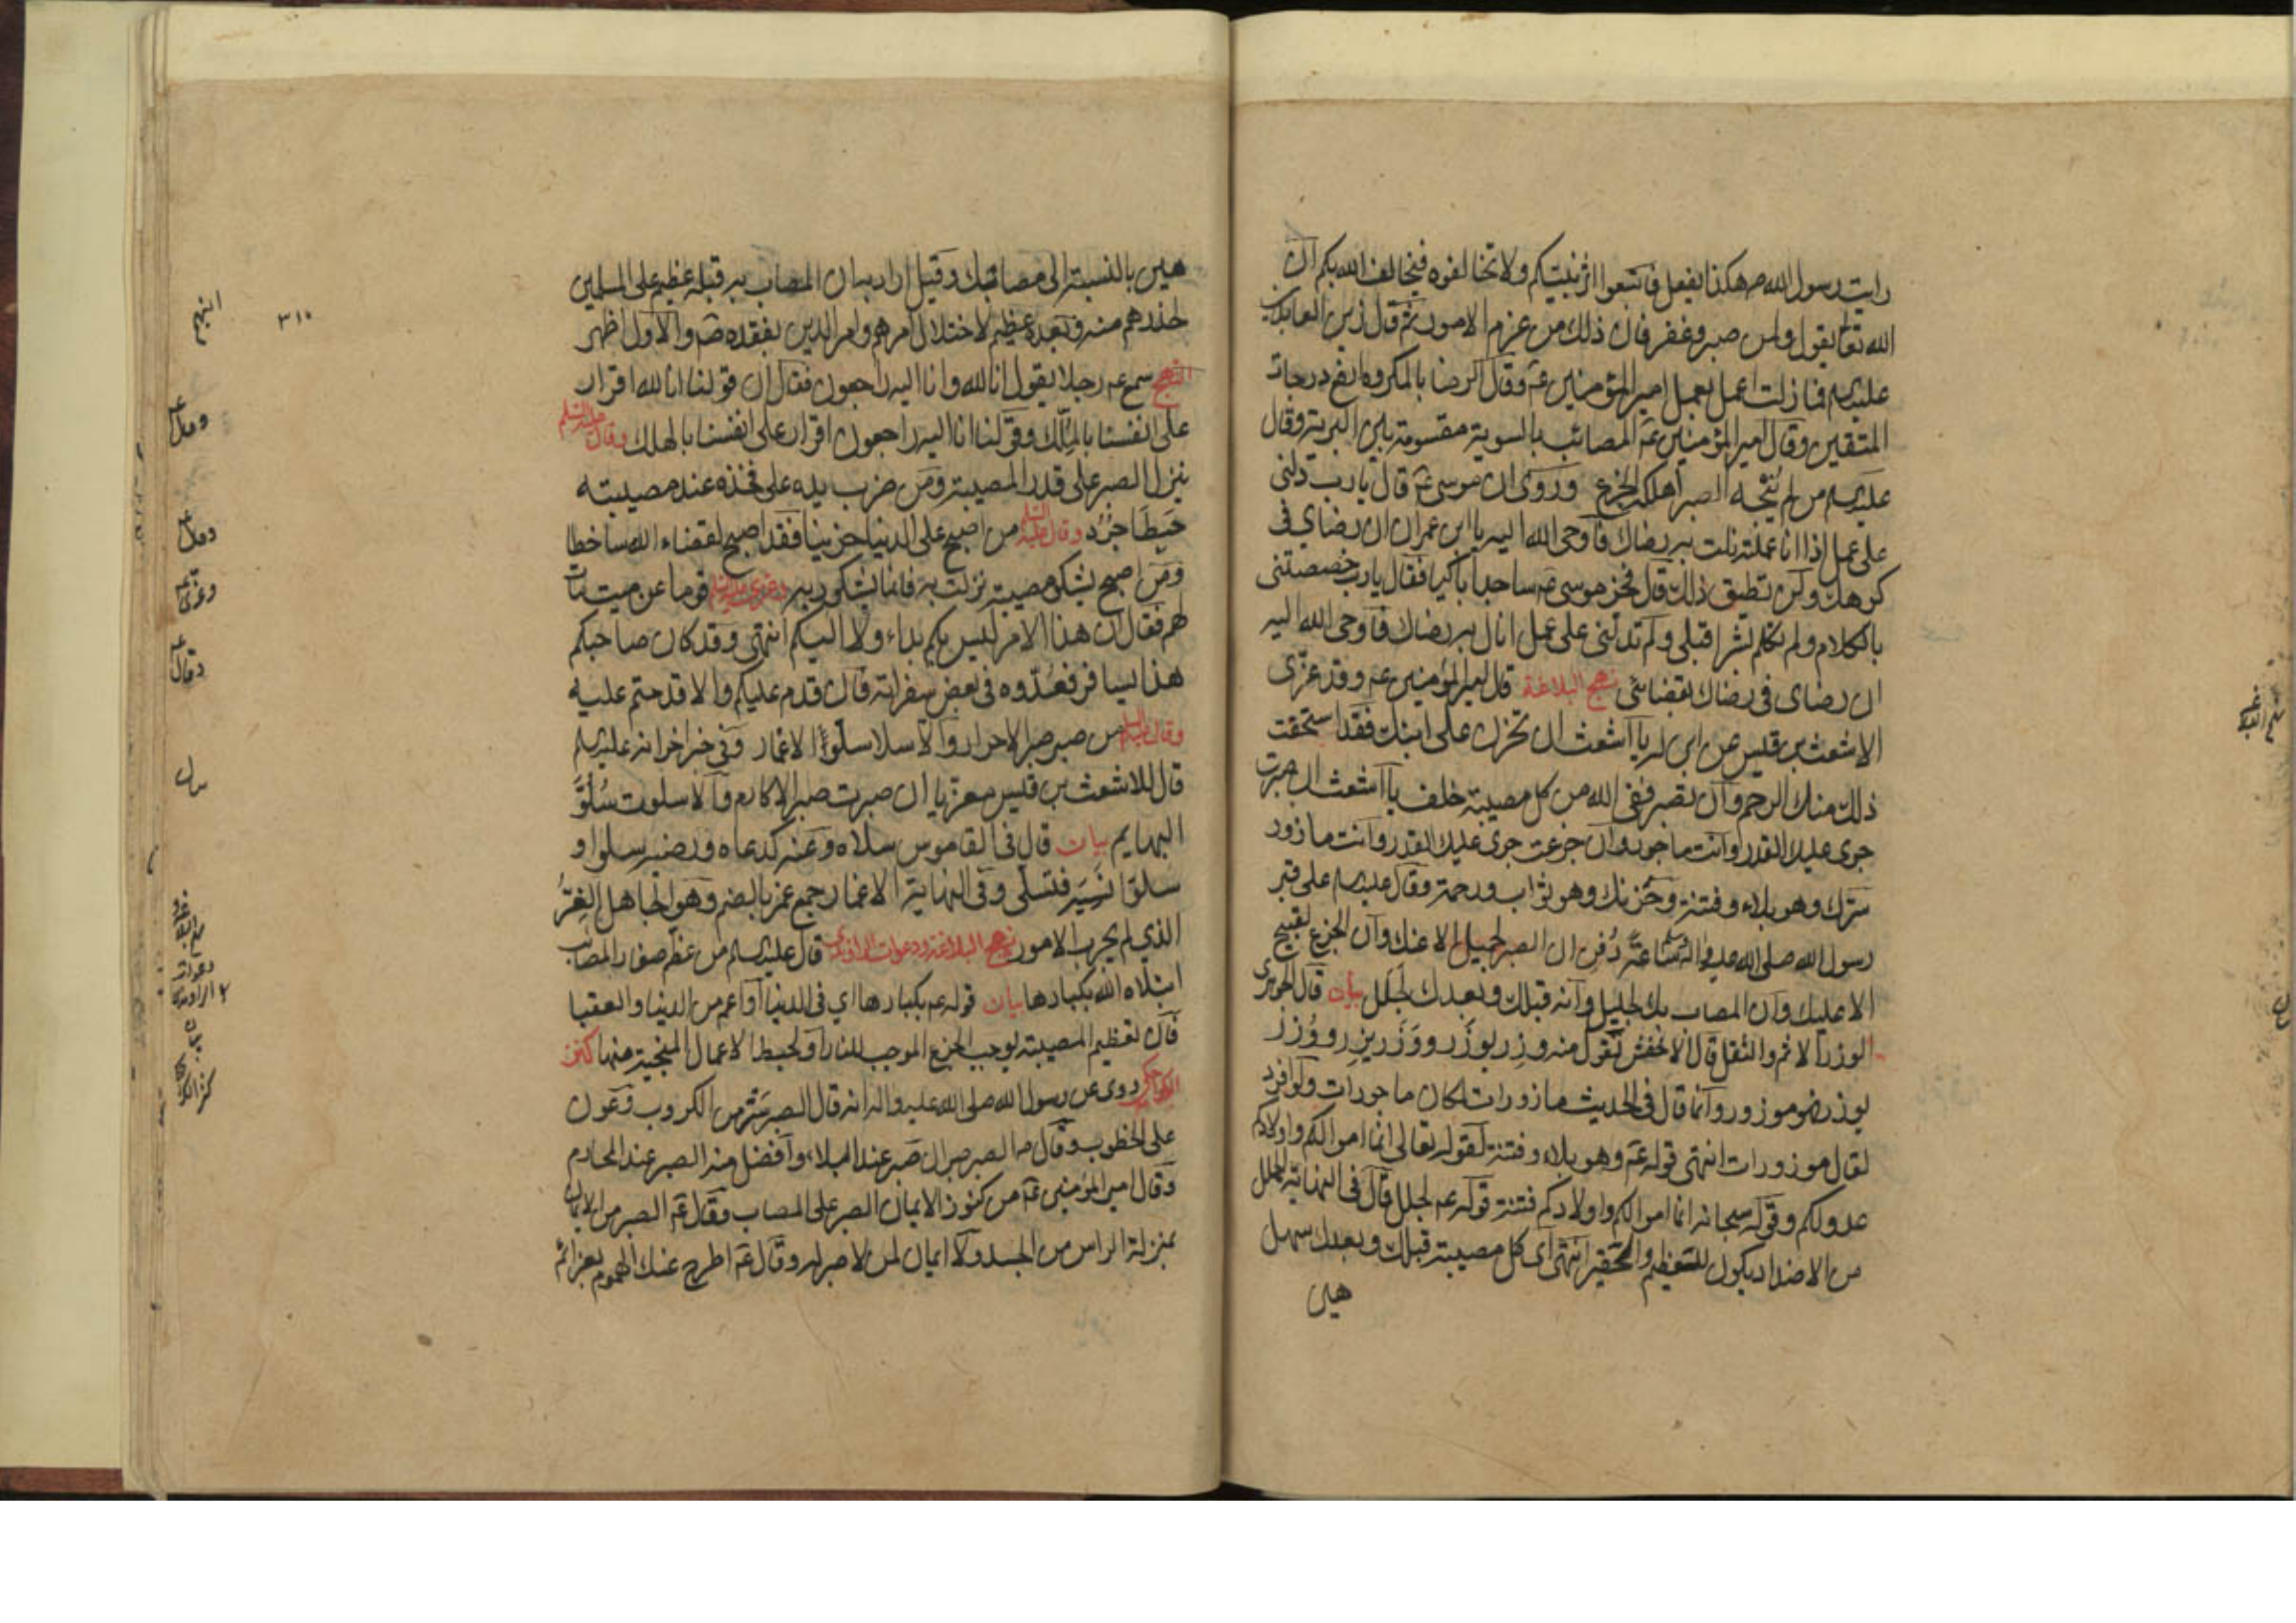 رايت رسول الله ص هكذا يفعل فاتبعوا اثر نبيكم ولا تخالفوه فيخالف الله بكم ان
الله تعا يقول ولمن صبر وغفر فان ذلك من عزم الامور ثم قال زين العابدين
عليه السلم فما زلت اعمل بعمل امير المؤمنين عم وقال الرضا بالمكروه ارفع درجات
المتقين وقال امير المؤمنين عم المصائب بالسوية مقسومة بين البرية وقال
عليه السلم من لم ينجه الصبر اهلكه الجزع وروى ان موسى عم قال يا رب دلنى
على عمل اذا انا عملته نلت به رضاك فاوحى الله اليه يا ابن عمران ان رضاي فى
كرهك ولن تطيق ذلك قال فخر موسى عم ساجدا باكيا فقال يا رب خصصتنى
بالكلام ولم تكلم بشرا قبلى ولم تدلنى على عمل انال به رضاك فاوحى الله اليه
ان رضاى فى رضاك بقضائى نهج البلاغة قال امير المؤمنين عم وقد عزى
الاشعث بن قيس عن ابن له يا اشعث ان تحزن على ابنك فقد استحقت
ذلك منك الرحم وان تصبر ففى الله من كل مصيبة خلف يا اشعث ان صبرت
جرى عليك القدر وانت ماجور وان جزعت جرى عليك القدر وانت مازور
سرك وهو بلاء وفتنة وحزنك وهو ثواب ورحمة وقال عليه السلم على قبر
رسول الله صلى الله عليه واله ساعة دفن ان الصبر لجميل الا عنك وان الجزع لقبيح
الا عليك وان المصاب بك لجليل وانه قبلك وبعدك لجلل بيان قال الجوهرى
الوزر الاثم والثقل قال الاخفش تقول منه وزر يوزر ووزر يزر ووزر
يوزر فهو موزور وانما قال فى الحديث مازورات لمكان ماجورات ولو افرد
لقال موزورات انتهى قوله عم وهو بلاء وفتنة لقوله تعالى انما اموالكم واولادكم
عدو لكم وقوله سبحانه انما اموالكم واولادكم فتنة قوله عم لجلل قال فى النهاية الجلل
من الاضداد يكون للتعظيم والتحقير انتهى اى كل مصيبة قبلك وبعدك سهل
هين
نهج البلاغة
بيان
هين بالنسبة الى مصابك وقيل اراد به ان المصاب به قبله عظيم على المسلمين
لحذرهم منه وبعده عظيم لاختلال امرهم وامر الدين بفقده ص والاول اظهر
النهج سمع عم رجلا يقول انا لله وانا اليه راجعون فقال ان قولنا انا لله اقرار
على انفسنا بالملك وقولنا انا اليه راجعون اقرار على انفسنا بالهلك وقال عليه السلم
ينزل الصبر على قدر المصيبة ومن ضرب يده على فخذه عند مصيبته
حبط اجره وقال عليه السلم من اصبح على الدنيا حزينا فقد اصبح لقضاء الله ساخطا
ومن اصبح يشكو مصيبة نزلت به فانما يشكو ربه وعزى عليه السلم قوما عن ميت مات
لهم فقال ان هذا الامر ليس بكم بداء ولا اليكم انتهى وقد كان صاحبكم
هذا يسافر فعدوه فى بعض سفراته فان قدم عليكم والا قدمتم عليه
وقال عليه السلم من صبر صبر الاحرار والا سلا سلو الاغمار وفى خبر اخر انه عليه السلم
قال للاشعث بن قيس معزيا ان صبرت صبر الاكارم والا سلوت سلو
البهايم بيان قال فى القاموس سلاه وعنه كدعاه ورضيه سلوا و
سلوا نسيه فتسلى وفى النهاية الاغمار جمع غمر بالضم وهو الجاهل الغر
الذي لم يجرب الامور نهج البلاغة ودعوات الراوندى قال عليه السلم من عظم صغار المصائب
ابتلاه الله بكبارها بيان قوله عم بكبارها اي فى الدنيا او اعم من الدنيا والعقبا
فان تعظيم المصيبة يوجب الجزع الموجب للنار او لحبط الاعمال المنجية منها كنز
الكراجكى روى عن رسول الله صلى الله عليه واله انه قال الصبر ستر من الكروب وعون
على الخطوب وقال ص الصبر صبران صبر عند البلاء وافضل منه الصبر عند المحارم
وقال امير المؤمنين عم من كنوز الايمان الصبر على المصاب وقال عم الصبر من الايمان
بمنزلة الراس من الجسد ولا ايمان لمن لا صبر له وقال عم اطرح عنك الهموم بعزائم
٣١٠
النهج
وقال
وقال
وعزى
وقال
بيان
نهج البلاغة
دعوات الراوندى
بيان
كنز الكراجكى